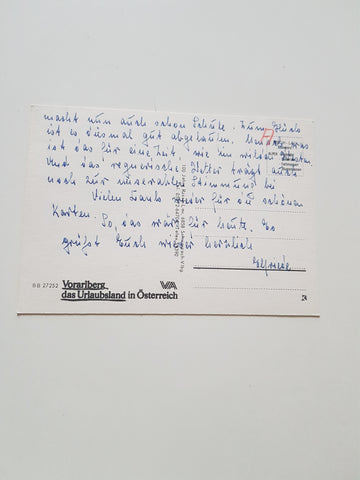 macht nun auch schon Schule. Zum Glück
ist es diesmal gut abgelaufen.
ist das für eine Zeit, wie im wilden Westen.
Und das regnerische Wetter trägt auch
noch zur miserablen Stimmung bei
Vielen Dank wieder für die schönen
Karten. So, das wär's für heute. Es
grüßt Euch wieder herzlich
Elfriede
BB 27252 Vorarlberg
das Urlaubsland in Österreich